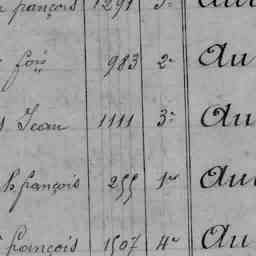 françois 1291 3e Au
foix 983 2e Au
Jean 1111 3e Au
h françois 255 1er Au
françois 1507 4e Au